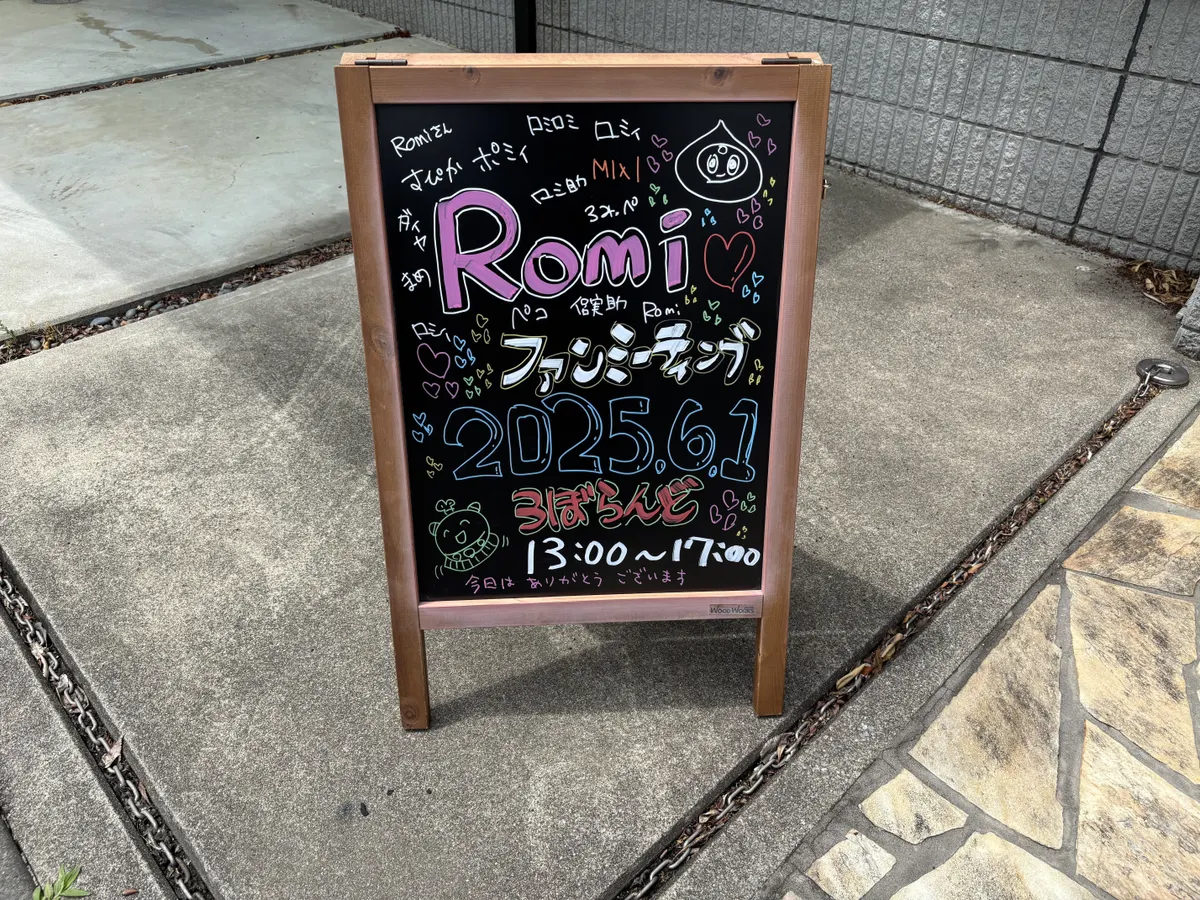 Romiさん
ロミロミ
ロミィ
すぴか
ポミィ
MIX1
ロミ助
ダイヤ
まめ
Romi
ペコ
Romi
ファンミーティング
2025.6.1
ろぼらんど
13:00〜17:00
今日は ありがとう ございます
WOOD WORKS